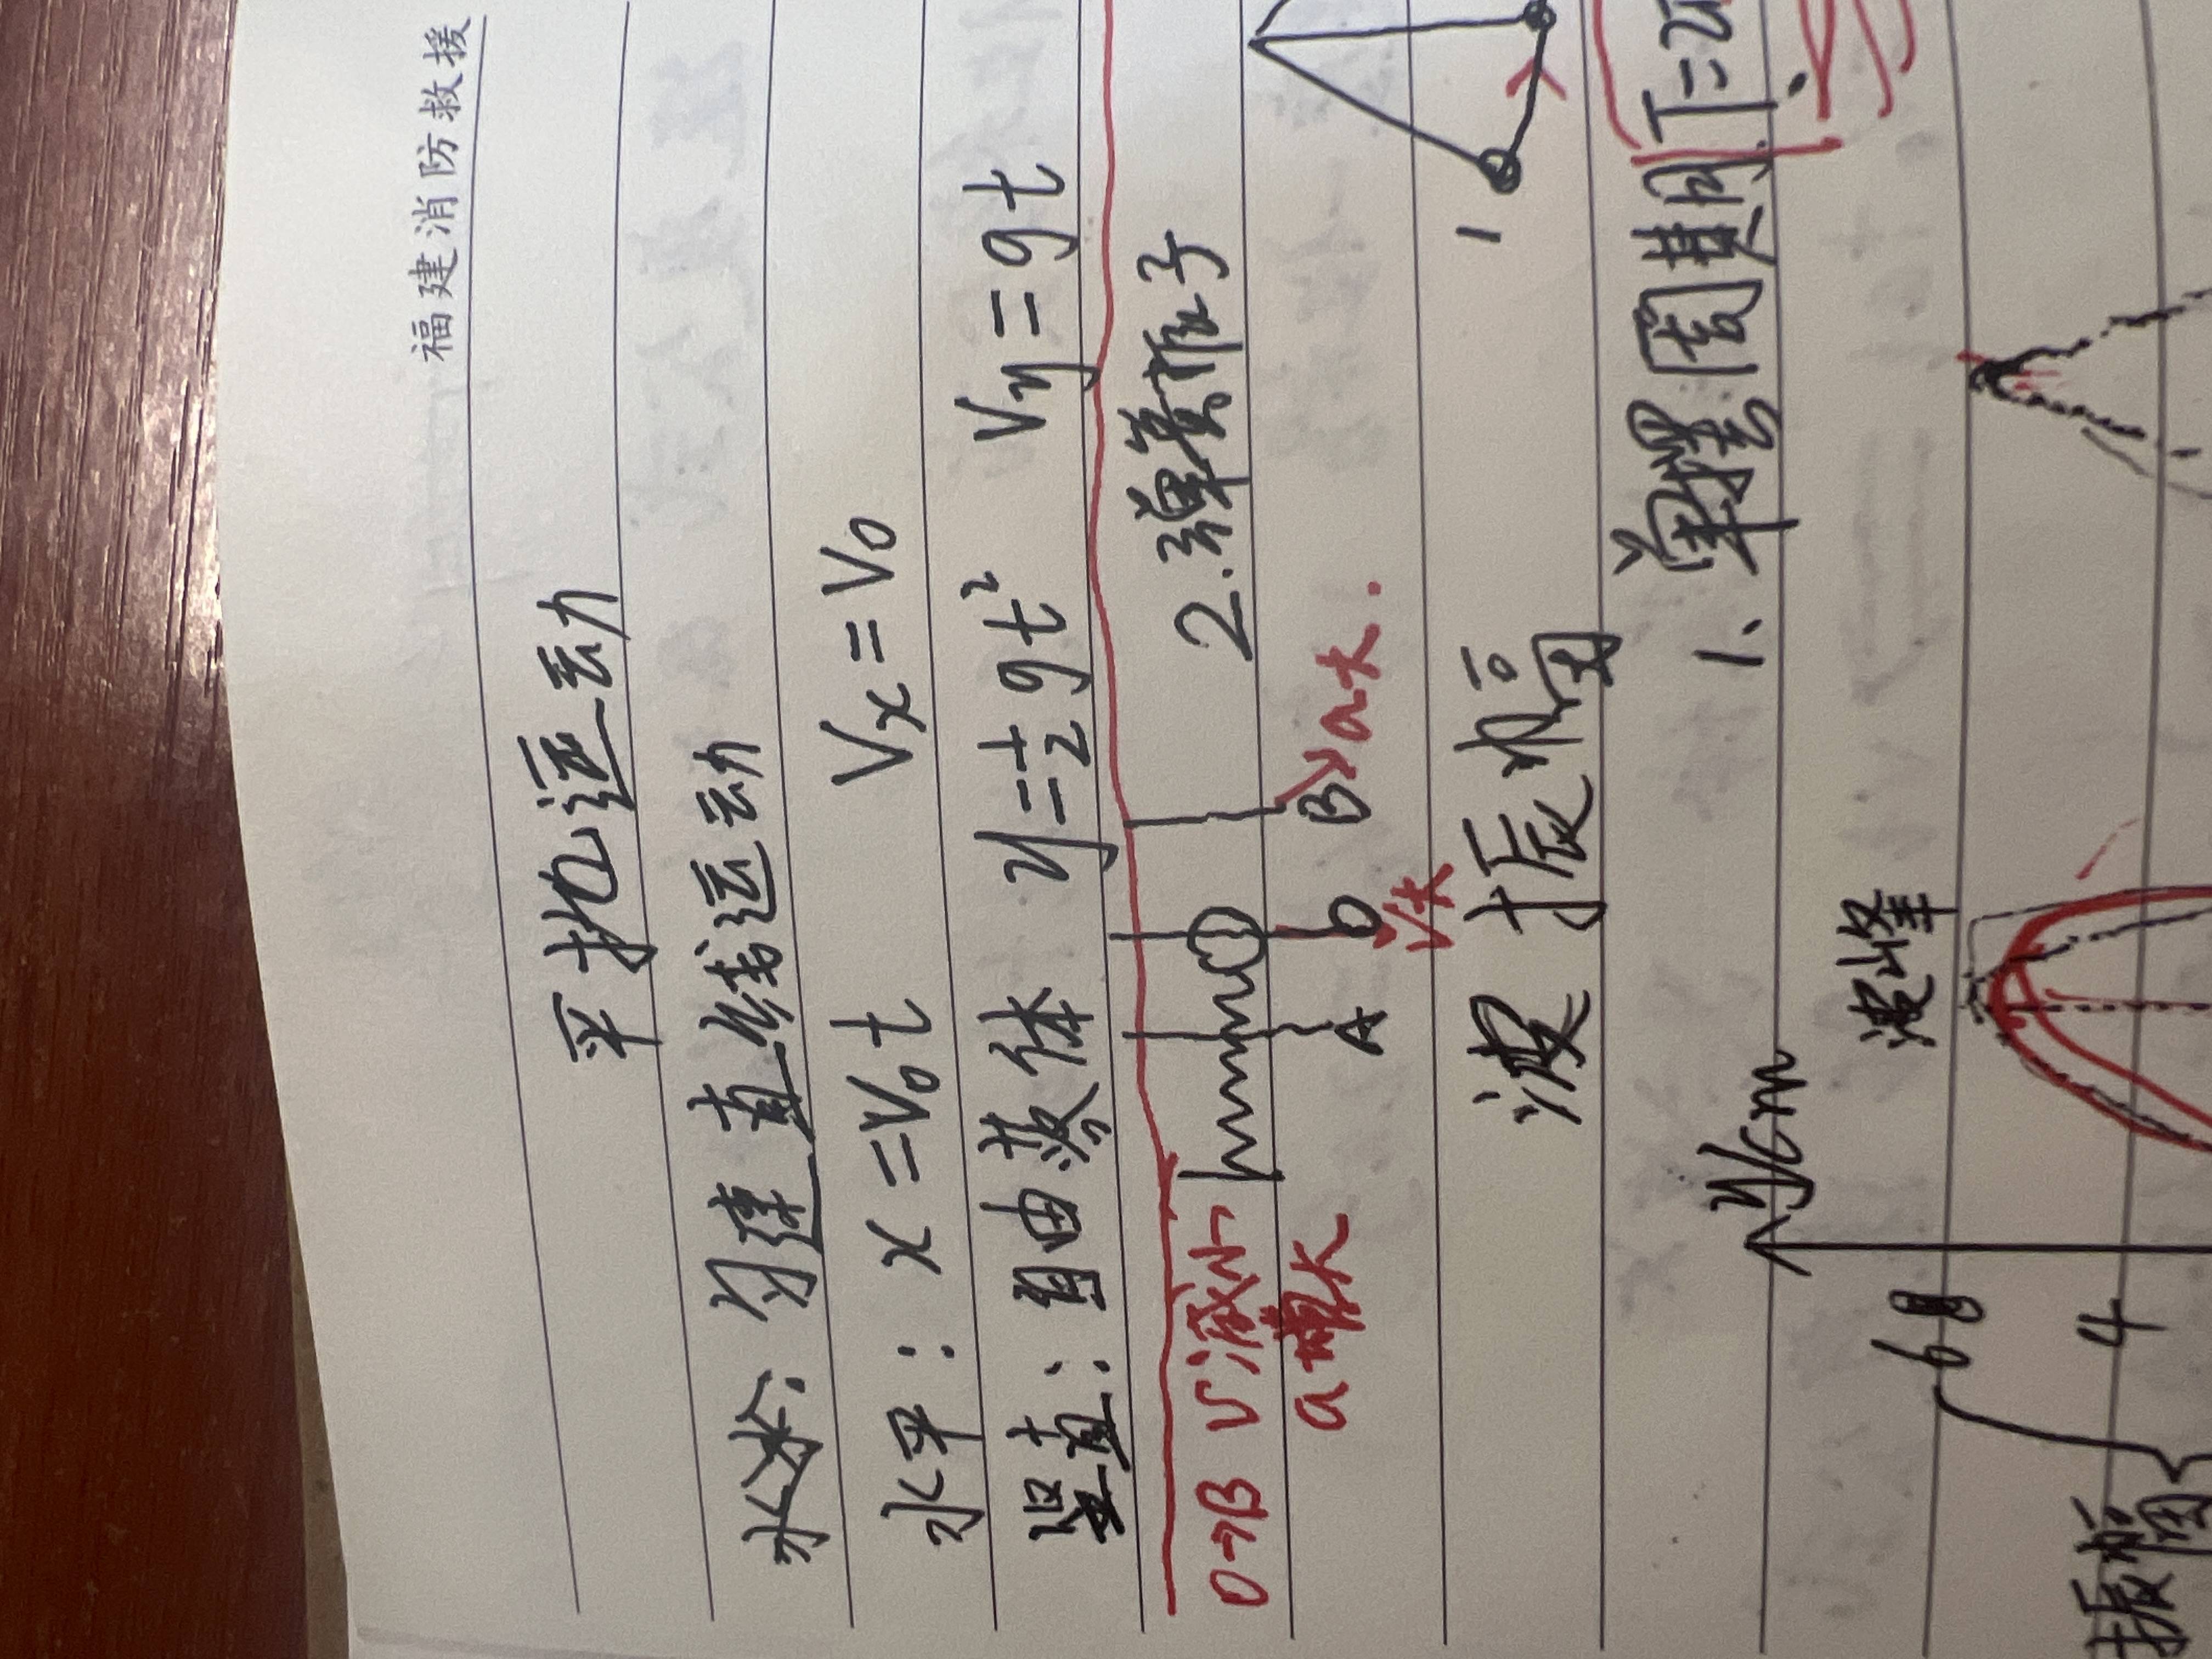 福建消防救援
平抛运动
水平: 匀速直线运动
水平: x=V₀t Vx=V₀
竖直: 自由落体 y=½gt² Vy=gt
2.弹簧振子
O→B V减小
a增大
A O B
V大
a大.
1
波 振幅
1、单摆周期 T=2
y/cm
波峰
6
4
振幅